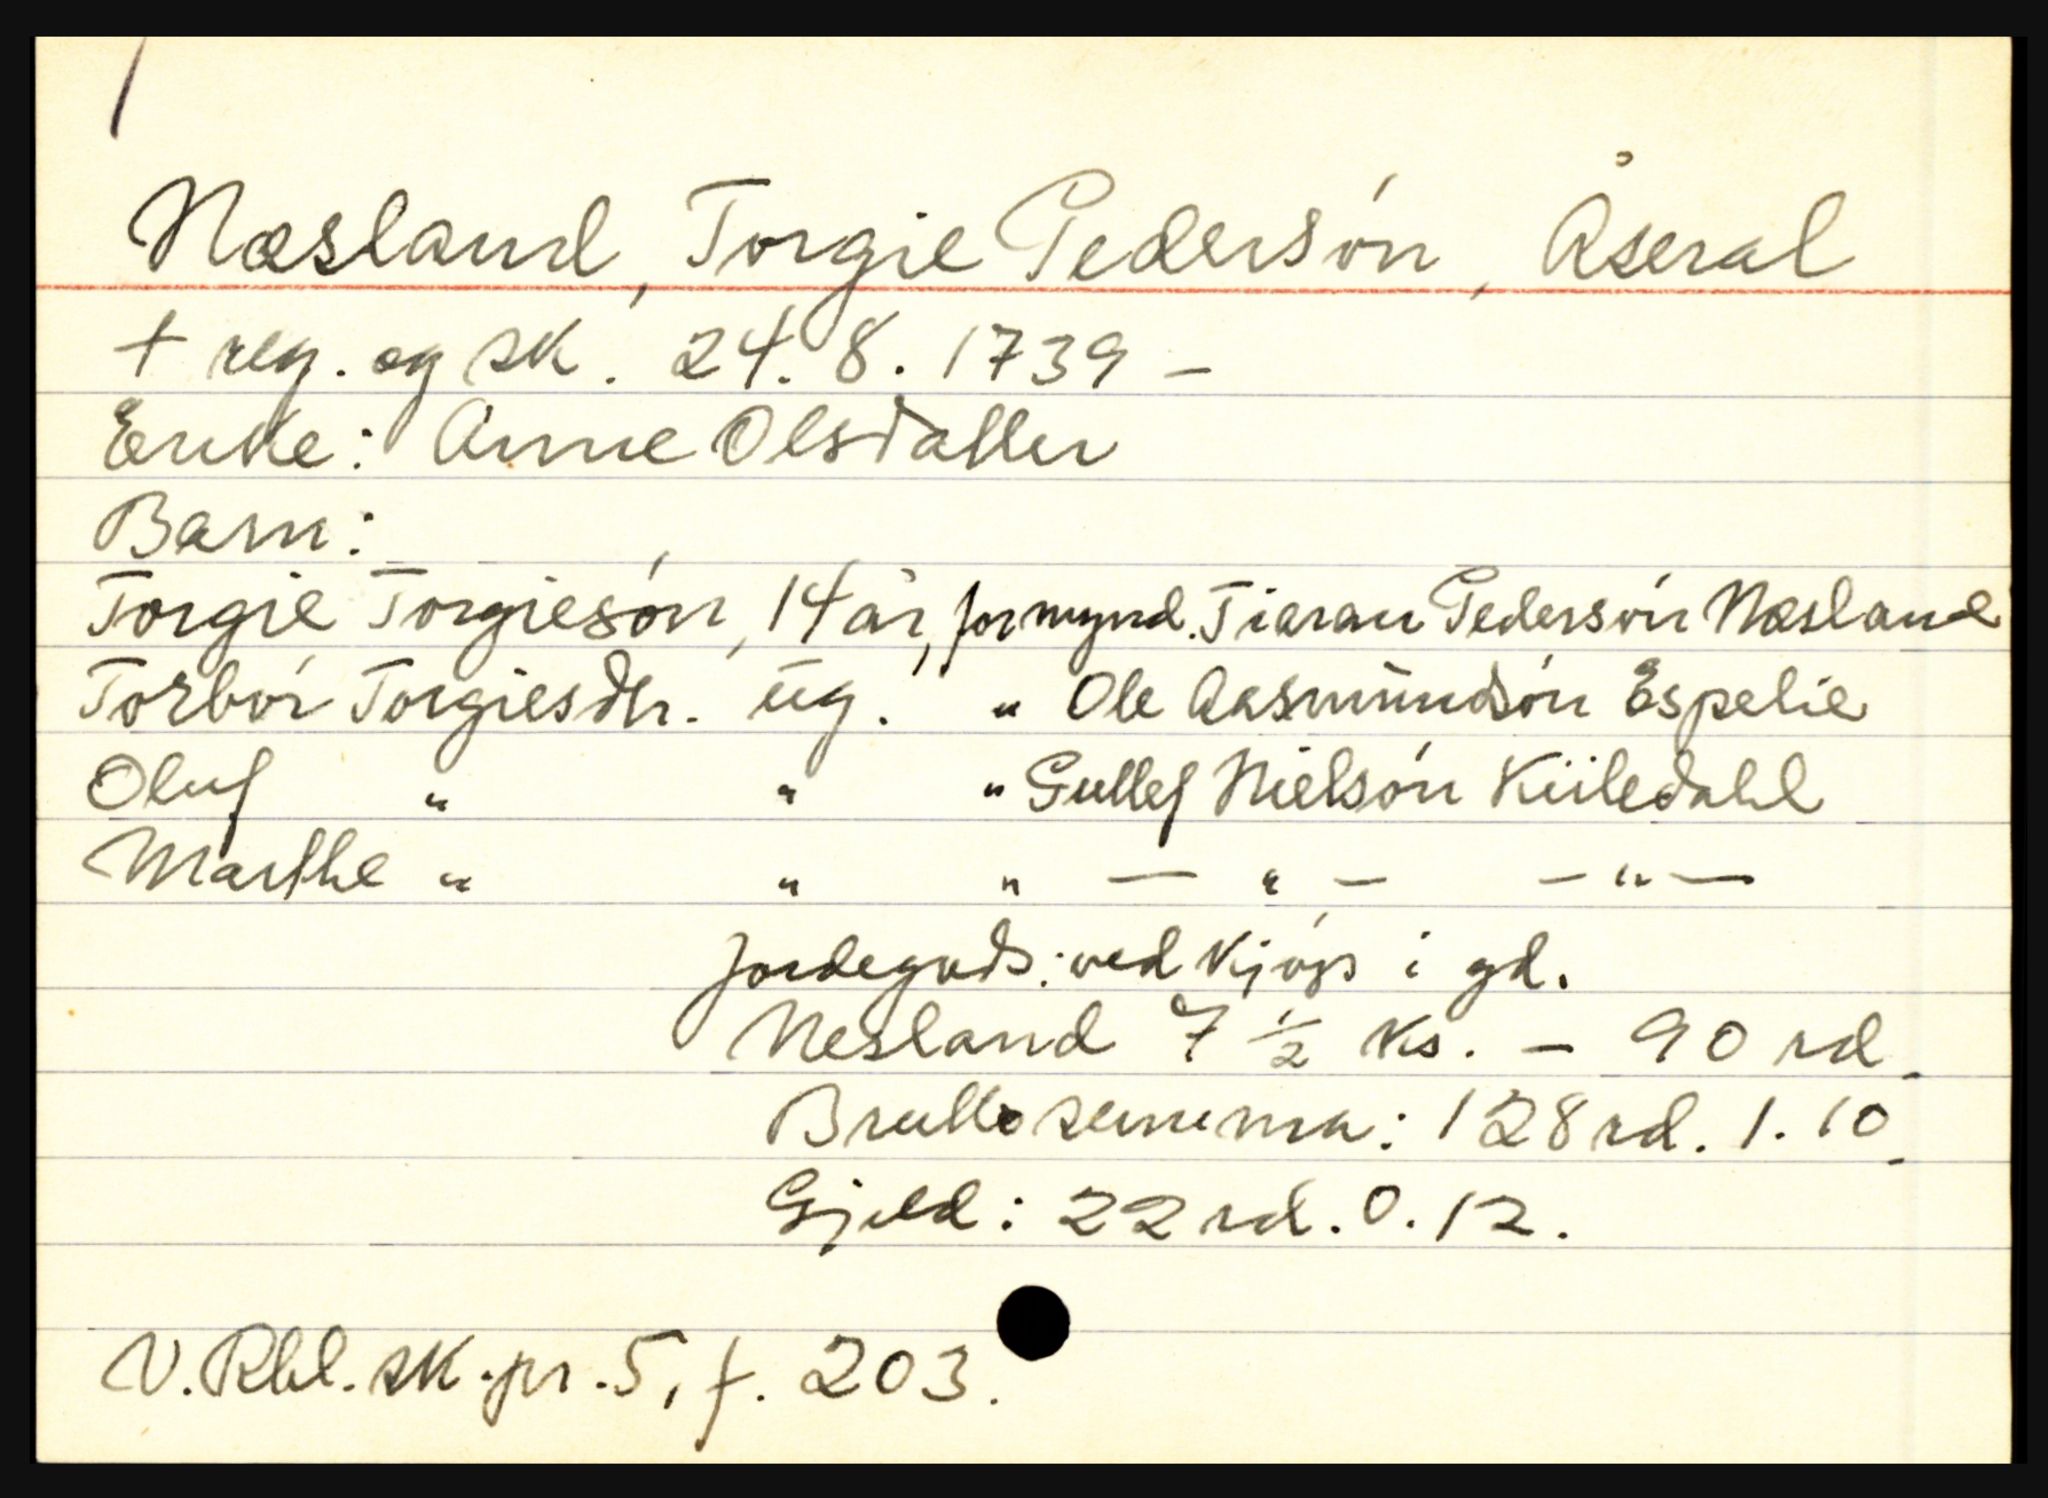 Næsland, Torgie Pedersón, Åseral
† reg. og sk. 24.8.1739 -
Enke: Anne Olsdatter
Barn:
Torgie Torgiesón, 14 år, formynd. Tiaran Pedersón Næsland
Torbór Torgiesdtr. ug. " Ole Aasmundsón Espelie
Oluf " " " Gullef Nielsón Kiiledahl
Marthe " " " — " — — " —
Jordegods: ved kjóp i gd.
Nesland 7 ½ ks. - 90 rd.
Brutto summa: 128 rd. 1. 10.
Gjeld: 22 rd. 0. 12.
V. Rbl. sk. pr. 5, f. 203.